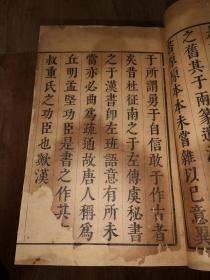 之舊其于兩篆
原本本未嘗雜以巳意異
于所謂勇于自信敢于作古者
矣昔杜征南之于左傳虞秘書
之于漢書即左班語意有所未
當亦必曲爲疏通故唐人稱爲
丘明孟堅功臣是書之作其
叔重氏之功臣也歟漢